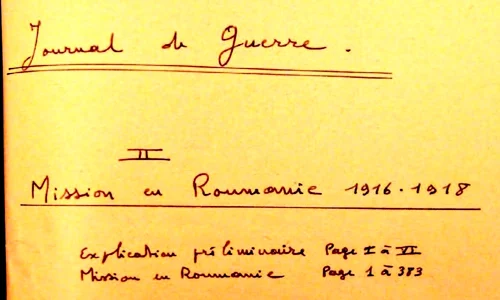 Journal de Guerre.
II
Mission en Roumanie 1916-1918
Explication préliminaire Page I à VI
Mission en Roumanie Page 1 à 383